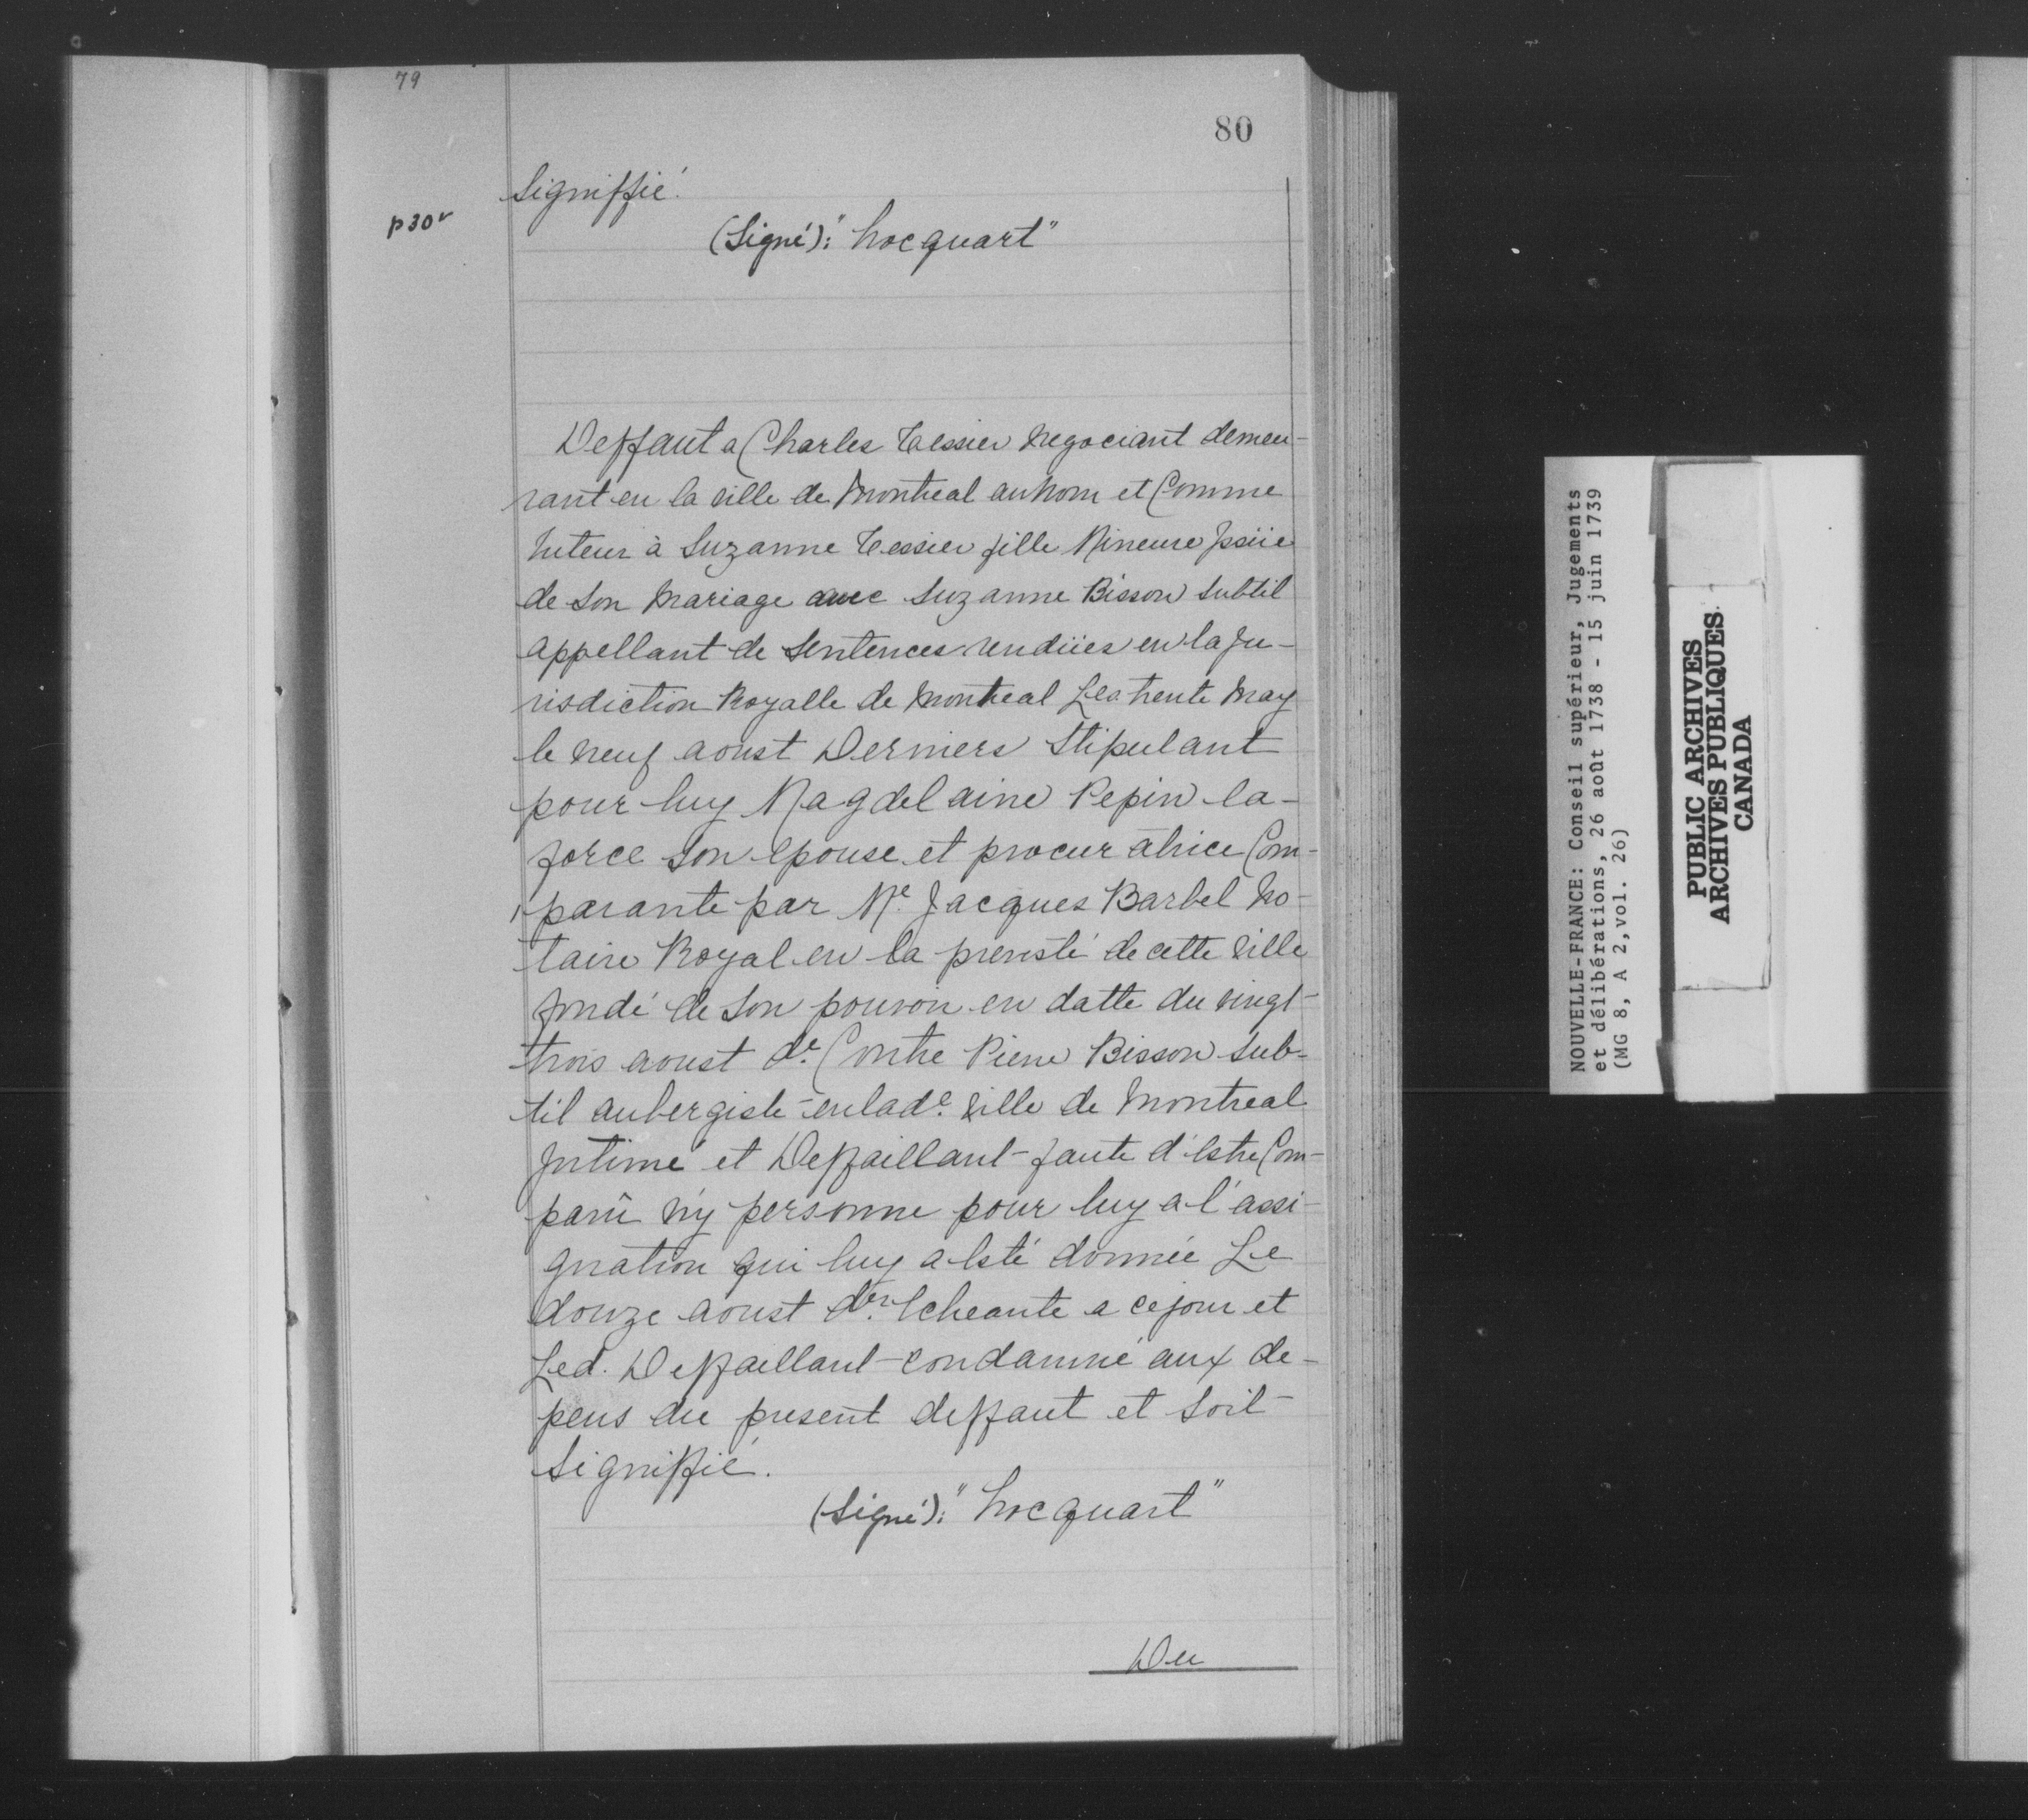 79
80
signiffié.
p 30 v
(Signé): "hocquart"
Deffaut a Charles Tessier Negociant demeu-
rant en la ville de Montreal au nom et Comme
tuteur à Suzanne Tessier fille Mineure Jssüe
de son Mariage avec Suzanne Bisson Subtil
appellant de Sentences rendües en la Ju-
risdiction Royalle de Montreal Les trente May
le neuf aoust Derniers Stipulant
pour luy Magdelaine Pepin la-
force son Epouse et procuratrice Com-
parante par Me. Jacques Barbel No-
taire Royal en la prevosté de cette ville
fondé de son pouvoir en datte du vingt-
trois aoust de. Contre Pierre Bisson Sub-
til aubergiste en lade. ville de Montreal
Jntimé et Deffaillant faute d'Estre Com-
parû ny personne pour luy a l'assi-
gnation qui luy a Esté donnée Le
douze aoust der. Echeante a ce jour et
Led. Deffaillant condamné aux de-
pens du present deffaut et soit
signiffié.
(Signé): "hocquart"
Du
NOUVELLE-FRANCE: Conseil supérieur, Jugements
et délibérations, 26 août 1738 - 15 juin 1739
(MG 8, A 2, vol. 26)
PUBLIC ARCHIVES
ARCHIVES PUBLIQUES
CANADA